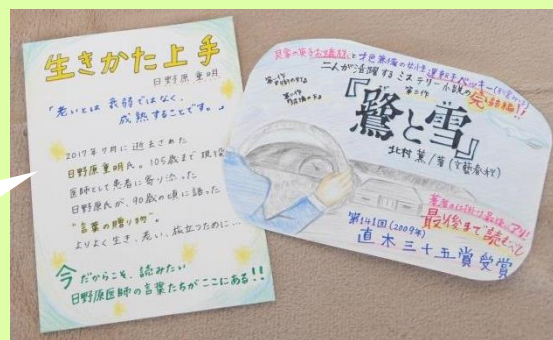 生きかた上手
日野原 重明
「老いとは 衰弱ではなく、
成熟することです。」
2017年7月に逝去された
日野原重明氏。105歳まで現役
医師として患者に寄り添った
日野原氏が、90歳の頃に語った
"言葉の贈り物"。
よりよく生き、老い、旅立つために…
今だからこそ、読みたい
日野原医師の言葉たちがここにある!!
良家の英子お嬢様と才色兼備の女性運転手ベッキー
二人が活躍するミステリー小説の完結編!!
第一作
第二作
第三作
『鷺と雪』
北村 薫/著(文藝春秋)
最後まで読むべし
第141回(2009年)
直木三十五賞受賞